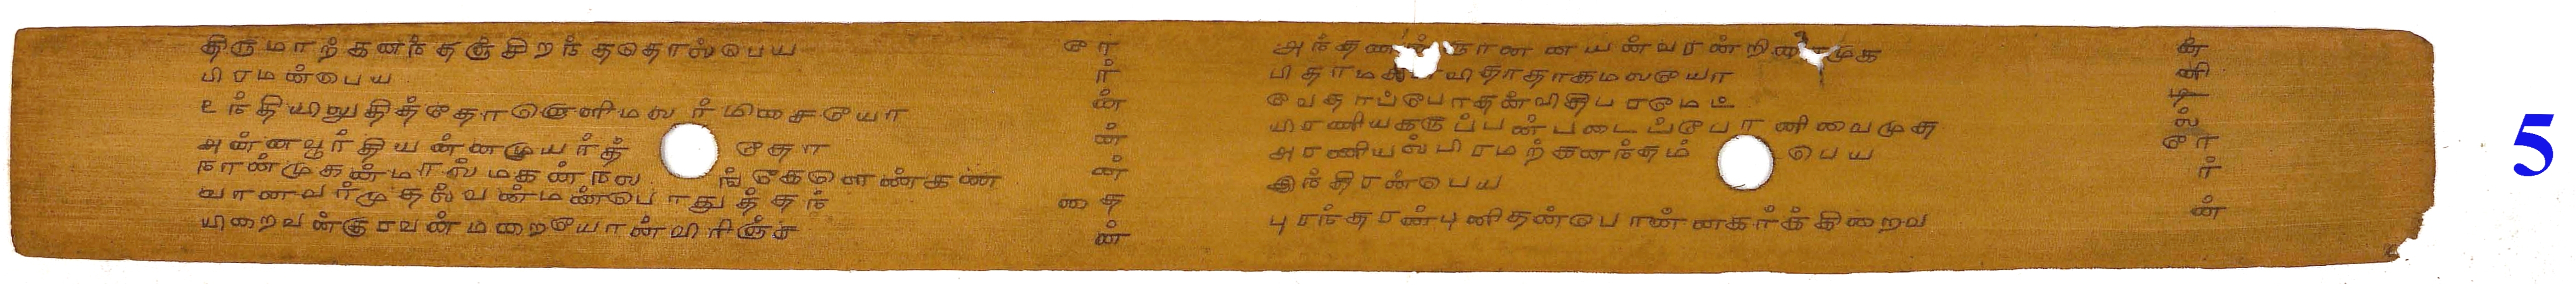 திருமாற்கனந்தஞ்சிறந்ததொல்பெய ரே
பிரமன்பெய ர்
உந்தியிலுதித்தோனொளிமலர்மிசையோ ன்
அன்னவூர்தியன்னமுயர்த் தோ ன்
நான்முகன்மால்மகன்நல ங்கொளெண்கண ன்
வானவர்முதல்வன்மண்பொதுத்தந் தை
யிறைவன்குரவன்மறையோன்விரிஞ்ச ன்
அந்தணன் ஞானனயன்வரன் முக ன்
பிதாமகன்விதாதாகமலயோ னி
வேதாப்போதன்விதிபரமேட் டி
யிரணியகருப்பன்படைப்போனிவைமுத ல்
அரணியல்பிரமற்கனந்தம் பெய ரே
இந்திரன்பெய ர்
புரந்தரன்புனிதன்பொன்னகர்க்கிறைவ ன்
5